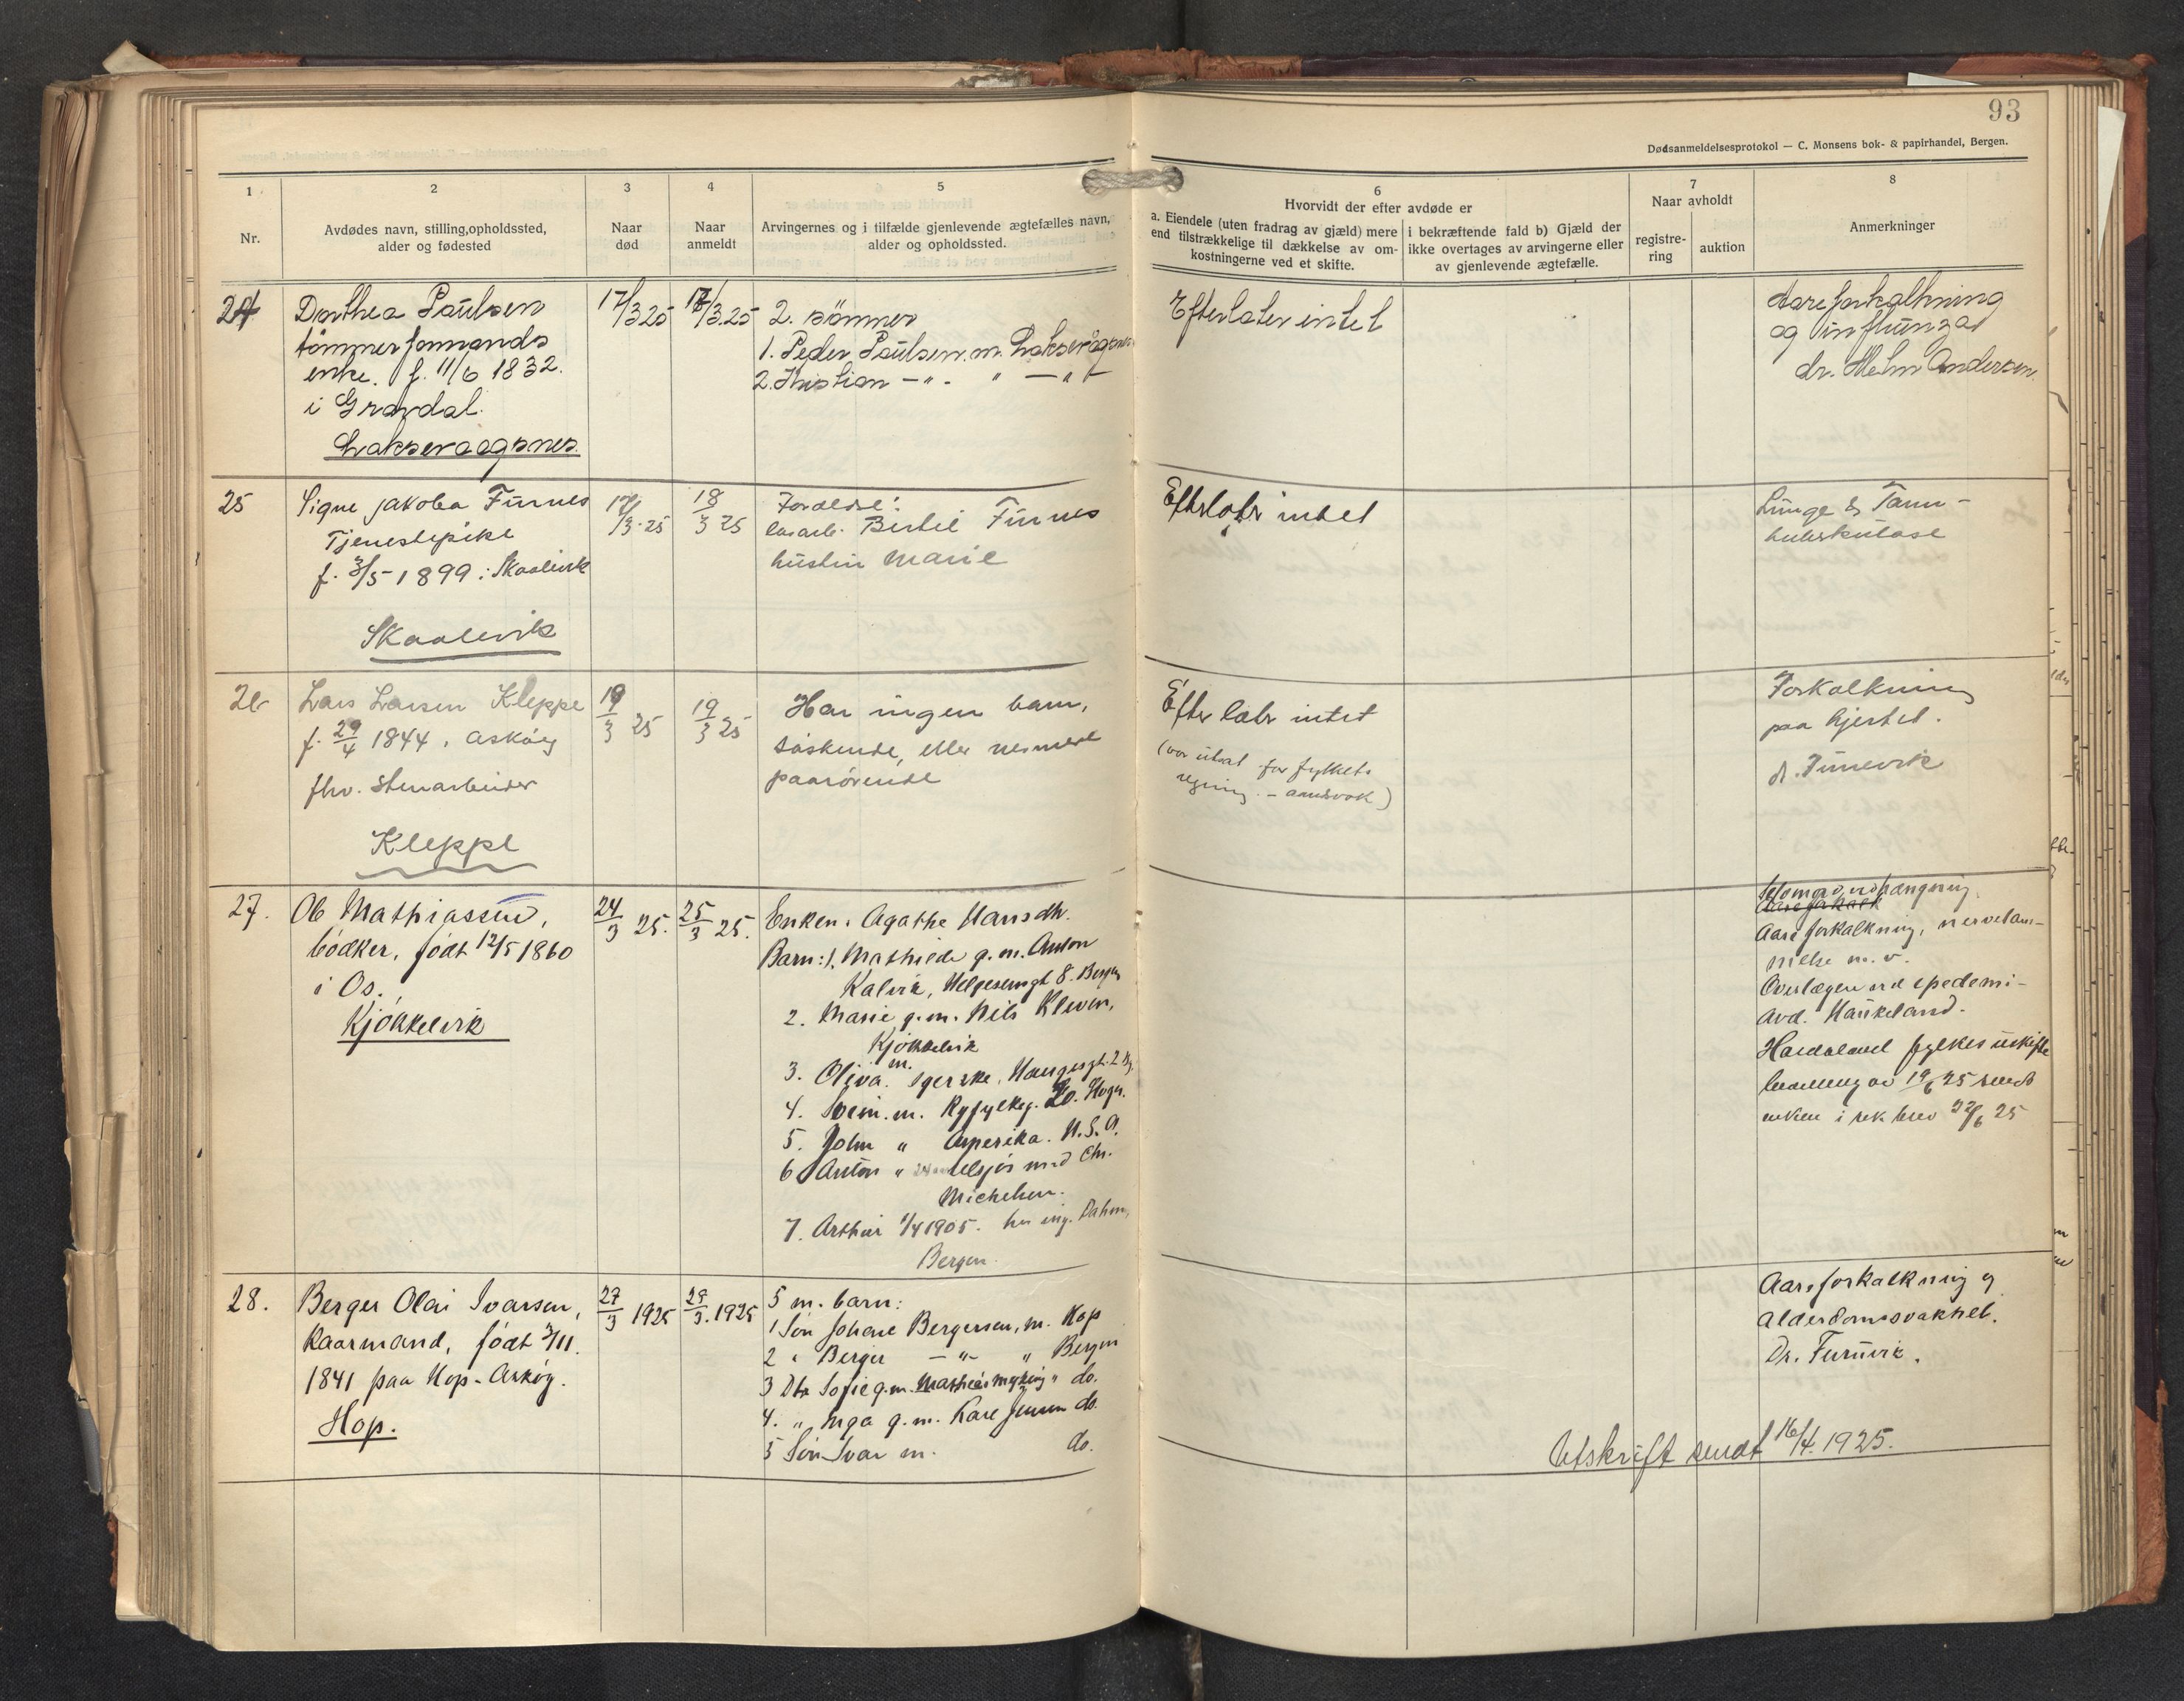 93
Dødsanmeldelsesprotokol — C. Monsens bok- & papirhandel, Bergen.
1
Nr.
2
Avdødes navn, stilling, opholdssted,
alder og fødested
3
Naar
død
4
Naar
anmeldt
5
Arvingernes og i tilfælde gjenlevende ægtefælles navn,
alder og opholdssted.
6
Hvorvidt der efter avdøde er
a. Eiendele (uten fradrag av gjæld) mere
end tilstrækkelige til dækkelse av om-
kostningerne ved et skifte.
i bekræftende fald b) Gjæld der
ikke overtages av arvingerne eller
av gjenlevende ægtefælle.
7
Naar avholdt
registre-
ring
auktion
8
Anmerkninger
24
Dorthea Paulsen
tömmerformands
enke. f. 11/6 1832.
i Gravdal.
Laksevaagsnes.
17/3 25
2. sönner
1. Peder Paulsen. m. Laksevågsnes
2. Kristian —"— " —"—
Efterlater intet
Aareforkalkning
og influnza
dr. Holm Andersen.
25
Signe Jakoba Furnes
Tjenestepike
f. 3/5 1899 i Skaalevik
Skaalevik
17/3 25
18/3 25
Foreldre:
løsarb. Bertil Furnes
hustru Marie
Efterlater intet
Lunge & Tarm-
tuberkulose
26
Lars Larsen Kleppe
f. 29/4 1844, Askøy
fhv. Stenarbeider
Kleppe
19/3 25
19/3 25
Har ingen barn,
søskende, eller nermere
paarørende
Efterlater intet
(var utsat for fylkets
regning. - aandsvak)
Forkalkning
paa hjertet.
dr. Tunevik
27.
Ole Mathiassen,
bödker, født 12/5 1860
i Os.
Kjøkkelvik
24/3 25.
25/3 25.
Enken: Agathe Hansdtr.
Barn: 1. Mathilde g. m. Anton
Kalvik, Helgesensgt 8. Bergen
2. Marie g. m. Nils Kleven,
Kjøkkelvik
3. Oliva. m.
4. m. Ryfylkeg.
5. John " Amerika. U.S.A.
6 Anton " tilsjøs med Chr.
Michelsen.
7. Arthur 1/4 1905. hos ing. Dahm,
Bergen.
Aareforkalkning, nervelam-
melse m. v.
Overlægen ved epedemi-
avd. Haukeland.
Hordaland fylkes uskifte
bevilling av 19/6 25 sendt
enken i rek brev 22/6 25
28.
Berger Olai Ivarsen,
Kaarmand, født 3/11.
1841 paa Hop - Askøy.
Hop.
27/3 1925
28/3. 1925
5 m. barn:
1 Søn Johane Bergersen, m. Hop
2 " Berger —"— " Bergen
3 Dtr Sofie g. m. Mathias Myking " do.
4. " Inga g. m. Kare Jensen do.
5 Søn Ivar m. do.
Aareforkalkning og
Alderdomssvakhet.
Dr. Furuvik.
Utskrift sendt 16/4. 1925.